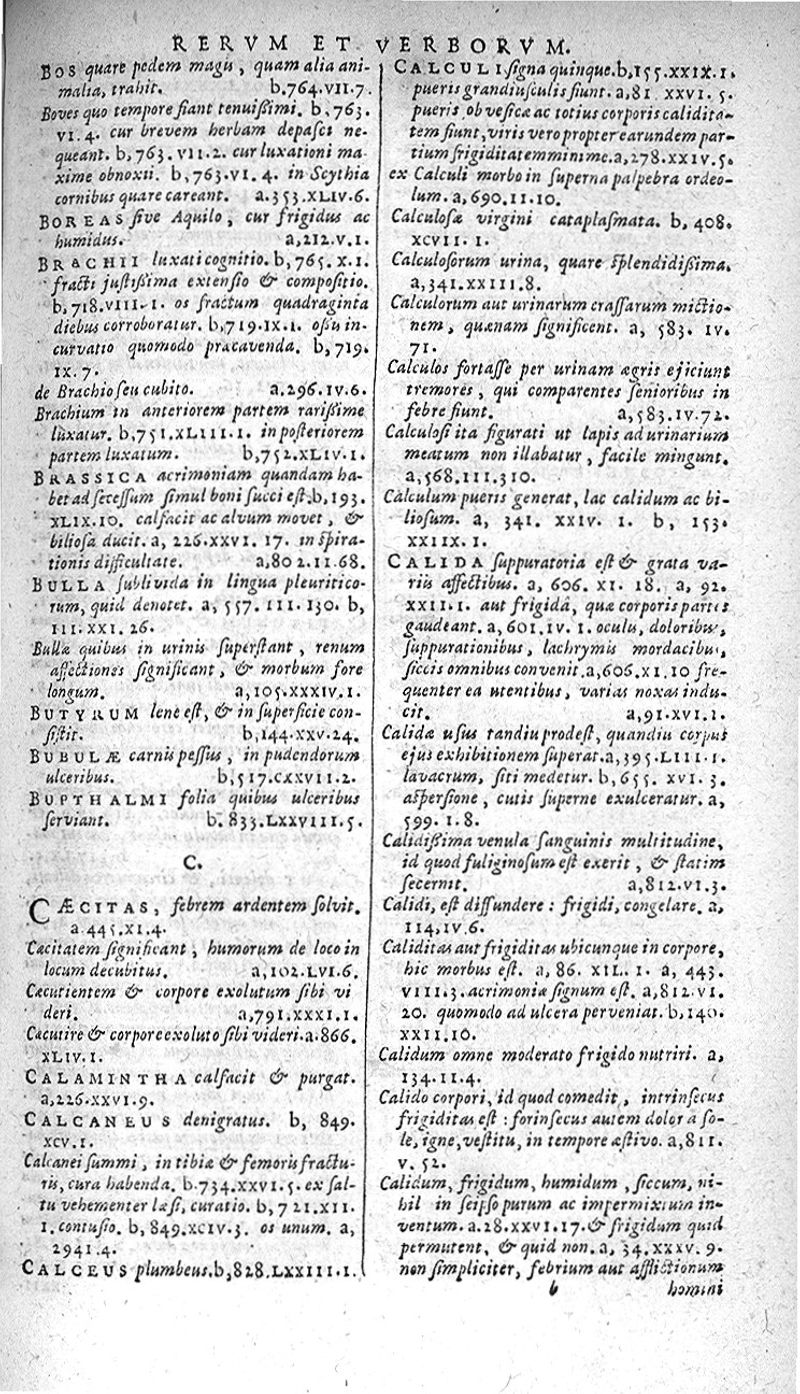 RERVM ET VERBORVM.
BOS quare pedem magis, quam alia ani-
malia, trahit. b.764.VII.7.
Boves quo tempore fiant tenuißimi. b,763.
VI.4. cur brevem herbam depasci ne-
queant. b,763. VII.2. cur luxationi ma-
xime obnoxii. b,763.VI. 4. in Scythia
cornibus quare careant. a.353.XLIV.6.
BOREAS sive Aquilo, cur frigidus ac
humidus. a,212.V.I.
BRACHII luxati cognitio. b,765.X.I.
fracti justißima extensio & compositio.
b,718.VIII.I. os fractum quadraginta
diebus corroboratur. b,719.IX.I. oßis in-
curvatio quomodo præcavenda. b,719.
IX.7.
de Brachio seu cubito. a.296.IV.6.
Brachium in anteriorem partem rarißime
luxatur. b,751.XLIII.I. in posteriorem
partem luxatum. b,752.XLIV.I.
BRASSICA acrimoniam quandam ha-
bet ad secessum simul boni succi est.b,193.
XLIX.10. calfacit ac alvum movet, &
biliosa ducit. a, 226.XXVI. 17. in spira-
tionis difficultate. a,802.II.68.
BULLA sublivida in lingua pleuritico-
rum, quid denotet. a, 557. III. 130. b,
III.XXI. 26.
Bullæ quibus in urinis superstant, renum
affectiones significant, & morbum fore
longum. a,105.XXXIV.I.
BUTYRUM lene est, & in superficie con-
sistit. b,144.XXV.24.
BUBULÆ carnis pessus, in pudendorum
ulceribus. b,517.CXXVII.2.
BUPTHALMI folia quibus ulceribus
serviant. b. 833.LXXVIII.5.
C.
CÆCITAS, febrem ardentem solvit.
a.445.XI.4.
Cæcitatem significant, humorum de loco in
locum decubitus. a,102.LVI.6.
Cæcutientem & corpore exolutum sibi vi
deri. a,791.XXXI.I.
Cæcutire & corpore exoluto sibi videri.a.866.
XLIV.I.
CALAMINTHA calfacit & purgat.
a,226.XXVI.9.
CALCANEUS denigratus. b, 849.
XCV.I.
Calcanei summi, in tibiæ & femoris fractu-
ris, cura habenda. b.734.XXVI.5. ex sal-
tu vehementer læsi, curatio. b, 721.XII.
I. contusio. b, 849.XCIV.3. os unum. a,
2941.4.
CALCEUS plumbeus.b,828.LXXIII.I.
CALCULI signa quinque.b,155.XXIX.I.
pueris grandiusculis fiunt. a,81. XXVI. 5.
pueris, ob vesicæ ac totius corporis calidita-
tem fiunt, viris vero propter earundem par-
tium frigiditatem minime.a,278.XXIV.5.
ex Calculi morbo in superna palpebra ordeo-
lum. a, 690.II.10.
Calculosæ virgini cataplasmata. b, 408.
XCVII. I.
Calculosorum urina, quare splendidißima.
a,341.XXIII.8.
Calculorum aut urinarum crassarum mictio-
nem, quænam significent. a, 583. IV.
71.
Calculos fortasse per urinam ægris ejiciunt
tremores, qui comparentes senioribus in
febre fiunt. a,583.IV.72.
Calculosi ita figurati ut lapis ad urinarium
meatum non illabatur, facile mingunt.
a,568.III.310.
Calculum pueris generat, lac calidum ac bi-
liosum. a, 341. XXIV. I. b, 153.
XXIIX. I.
CALIDA suppuratoria est & grata va-
riis affectibus. a, 606. XI. 18. a, 92.
XXII.I. aut frigida, quæ corporis partes
gaudeant. a,601.IV. I. oculis, doloribus,
suppurationibus, lachrymis mordacibus,
siccis omnibus convenit.a,606.XI.10 fre-
quenter ea utentibus, varias noxas indu-
cit. a,91.XVI.I.
Calidæ usus tandiu prodest, quandiu corpus
ejus exhibitionem superat.a,395.LIII.I.
lavacrum, siti medetur. b,655. XVI. 3.
aspersione, cutis superne exulceratur. a,
599. I.8.
Calidißima venula sanguinis multitudine,
id quod fuliginosum est exerit, & statim
secernit. a,812.VI.3.
Calidi, est diffundere : frigidi, congelare. a,
114,IV.6.
Caliditas aut frigiditas ubicunque in corpore,
hic morbus est. a, 86. XIL. I. a, 443.
VIII.3. acrimoniæ signum est. a,812.VI.
20. quomodo ad ulcera perveniat. b,140.
XXII.10.
Calidum omne moderato frigido nutriri. a,
134.II.4.
Calido corpori, id quod comedit, intrinsecus
frigiditas est : forinsecus autem dolor a so-
le, igne, vestitu, in tempore æstivo. a,811.
V. 52.
Calidum, frigidum, humidum, siccum, ni-
hil in seipso purum ac impermixtum in-
ventum. a.28.XXVI.17.& frigidum quid
permutent, & quid non. a, 34.XXXV. 9.
non simpliciter, febrium aut afflictionum
b homini